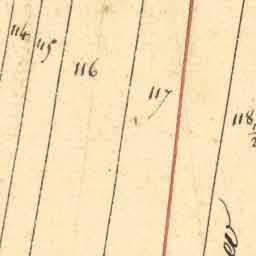 114
115
116
117
118 1/2